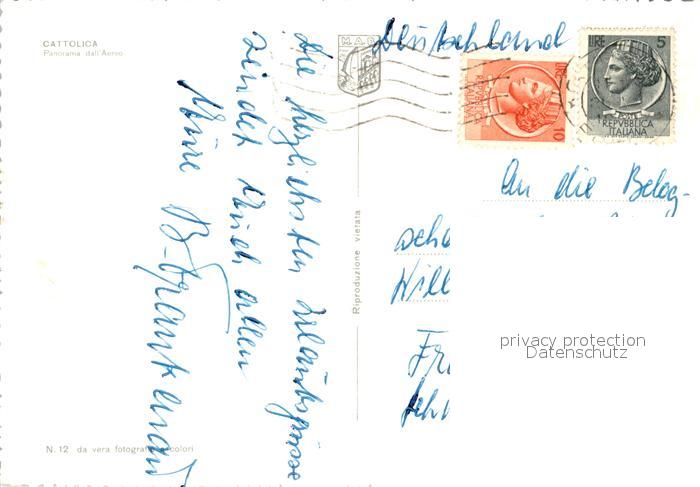 CATTOLICA
Panorama dall'Aereo
die herzlichsten Urlaubsgrüsse
sendet Euch allen
Eure
N. 12 da vera fotografia colori
Riproduzione vietata
M.A.P.
Deutschland
LIRE 10
REPVBBLICA
ITALIANA
LIRE 5
REPVBBLICA
ITALIANA
An die Beleg-
scha
Will
Fr
privacy protection
Datenschutz